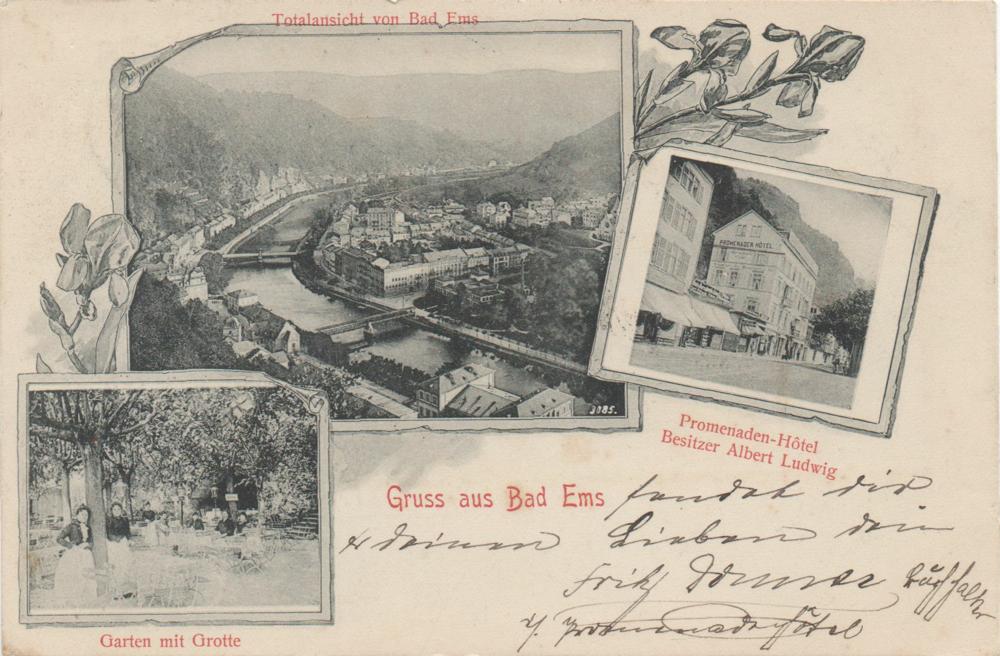 Totalansicht von Bad Ems
PROMENADEN HÔTEL
3085.
Promenaden-Hôtel
Besitzer Albert Ludwig
Gruss aus Bad Ems sendet dir
& deinen Lieben dein
Fritz Buchhalter
z. Promenadenhôtel
Garten mit Grotte